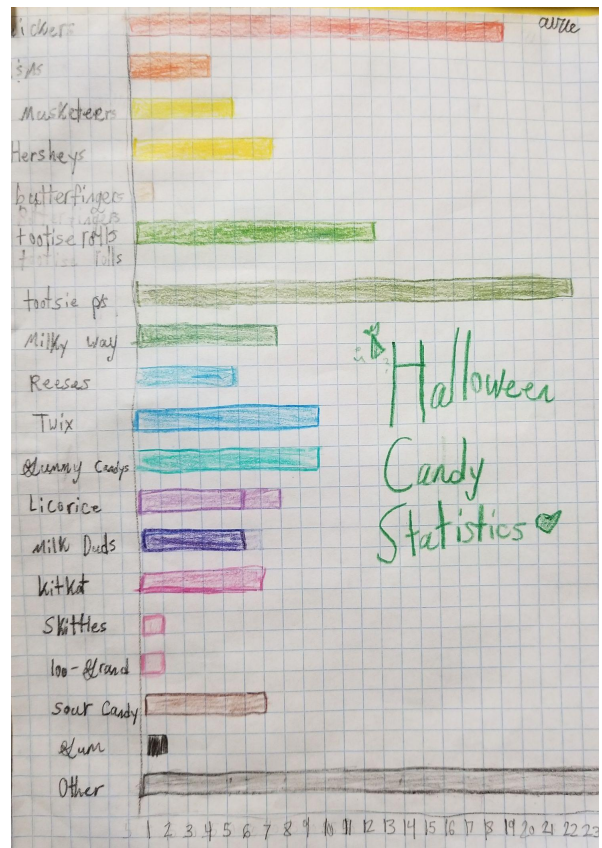 ickers
avrle
sms
Musketeers
Hersheys
butterfingers
tootise rolls
tootise rolls
tootsie ps
Milky way
Reeses
Twix
Gummy Candys
Licorice
Milk Duds
kitkat
Skittles
100-Grand
sour Candy
Gum
Other
Halloween
Candy
Statistics
1 2 3 4 5 6 7 8 9 10 11 12 13 14 15 16 17 18 19 20 21 22 23